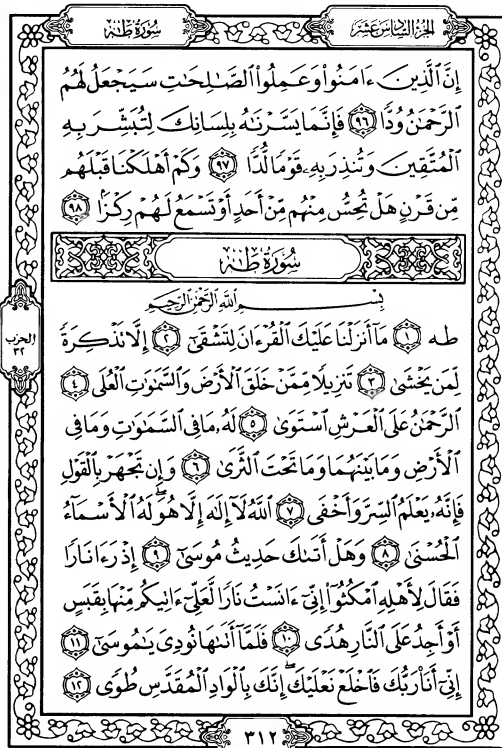 سُورَةُ طه
الجُزْءُ السَّادِسَ عَشَرَ
إِنَّ ٱلَّذِينَ ءَامَنُوا۟ وَعَمِلُوا۟ ٱلصَّـٰلِحَـٰتِ سَيَجْعَلُ لَهُمُ
ٱلرَّحْمَـٰنُ وُدًّا ٩٦ فَإِنَّمَا يَسَّرْنَـٰهُ بِلِسَانِكَ لِتُبَشِّرَ بِهِ
ٱلْمُتَّقِينَ وَتُنذِرَ بِهِۦ قَوْمًا لُّدًّا ٩٧ وَكَمْ أَهْلَكْنَا قَبْلَهُم
مِّن قَرْنٍ هَلْ تُحِسُّ مِنْهُم مِّنْ أَحَدٍ أَوْ تَسْمَعُ لَهُمْ رِكْزًۢا ٩٨
سُورَةُ طه
بِسْمِ ٱللَّهِ ٱلرَّحْمَـٰنِ ٱلرَّحِيمِ
طه ١ مَآ أَنزَلْنَا عَلَيْكَ ٱلْقُرْءَانَ لِتَشْقَىٰٓ ٢ إِلَّا تَذْكِرَةً
لِّمَن يَخْشَىٰ ٣ تَنزِيلًا مِّمَّنْ خَلَقَ ٱلْأَرْضَ وَٱلسَّمَـٰوَٰتِ ٱلْعُلَى ٤
ٱلرَّحْمَـٰنُ عَلَى ٱلْعَرْشِ ٱسْتَوَىٰ ٥ لَهُۥ مَا فِى ٱلسَّمَـٰوَٰتِ وَمَا فِى
ٱلْأَرْضِ وَمَا بَيْنَهُمَا وَمَا تَحْتَ ٱلثَّرَىٰ ٦ وَإِن تَجْهَرْ بِٱلْقَوْلِ
فَإِنَّهُۥ يَعْلَمُ ٱلسِّرَّ وَأَخْفَى ٧ ٱللَّهُ لَآ إِلَـٰهَ إِلَّا هُوَ ۖ لَهُ ٱلْأَسْمَآءُ
ٱلْحُسْنَىٰ ٨ وَهَلْ أَتَىٰكَ حَدِيثُ مُوسَىٰٓ ٩ إِذْ رَءَا نَارًا
فَقَالَ لِأَهْلِهِ ٱمْكُثُوٓا۟ إِنِّىٓ ءَانَسْتُ نَارًا لَّعَلِّىٓ ءَاتِيكُم مِّنْهَا بِقَبَسٍ
أَوْ أَجِدُ عَلَى ٱلنَّارِ هُدًى ١٠ فَلَمَّآ أَتَىٰهَا نُودِىَ يَـٰمُوسَىٰٓ ١١
إِنِّىٓ أَنَا۠ رَبُّكَ فَٱخْلَعْ نَعْلَيْكَ ۖ إِنَّكَ بِٱلْوَادِ ٱلْمُقَدَّسِ طُوًى ١٢
الحزب
٣٢
٣١٢